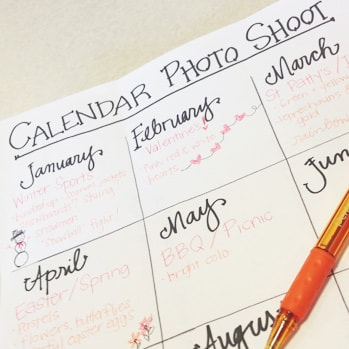 CALENDAR PHOTO SHOOT
January
Winter Sports
snowman
snowball fight!
February
Valentines
pink red & white
hearts
March
St Patty's
gold
rainbow
April
Easter/Spring
Pastels
flowers, butterflies
easter eggs
May
BBQ / Picnic
bright colo
Jun
Augus